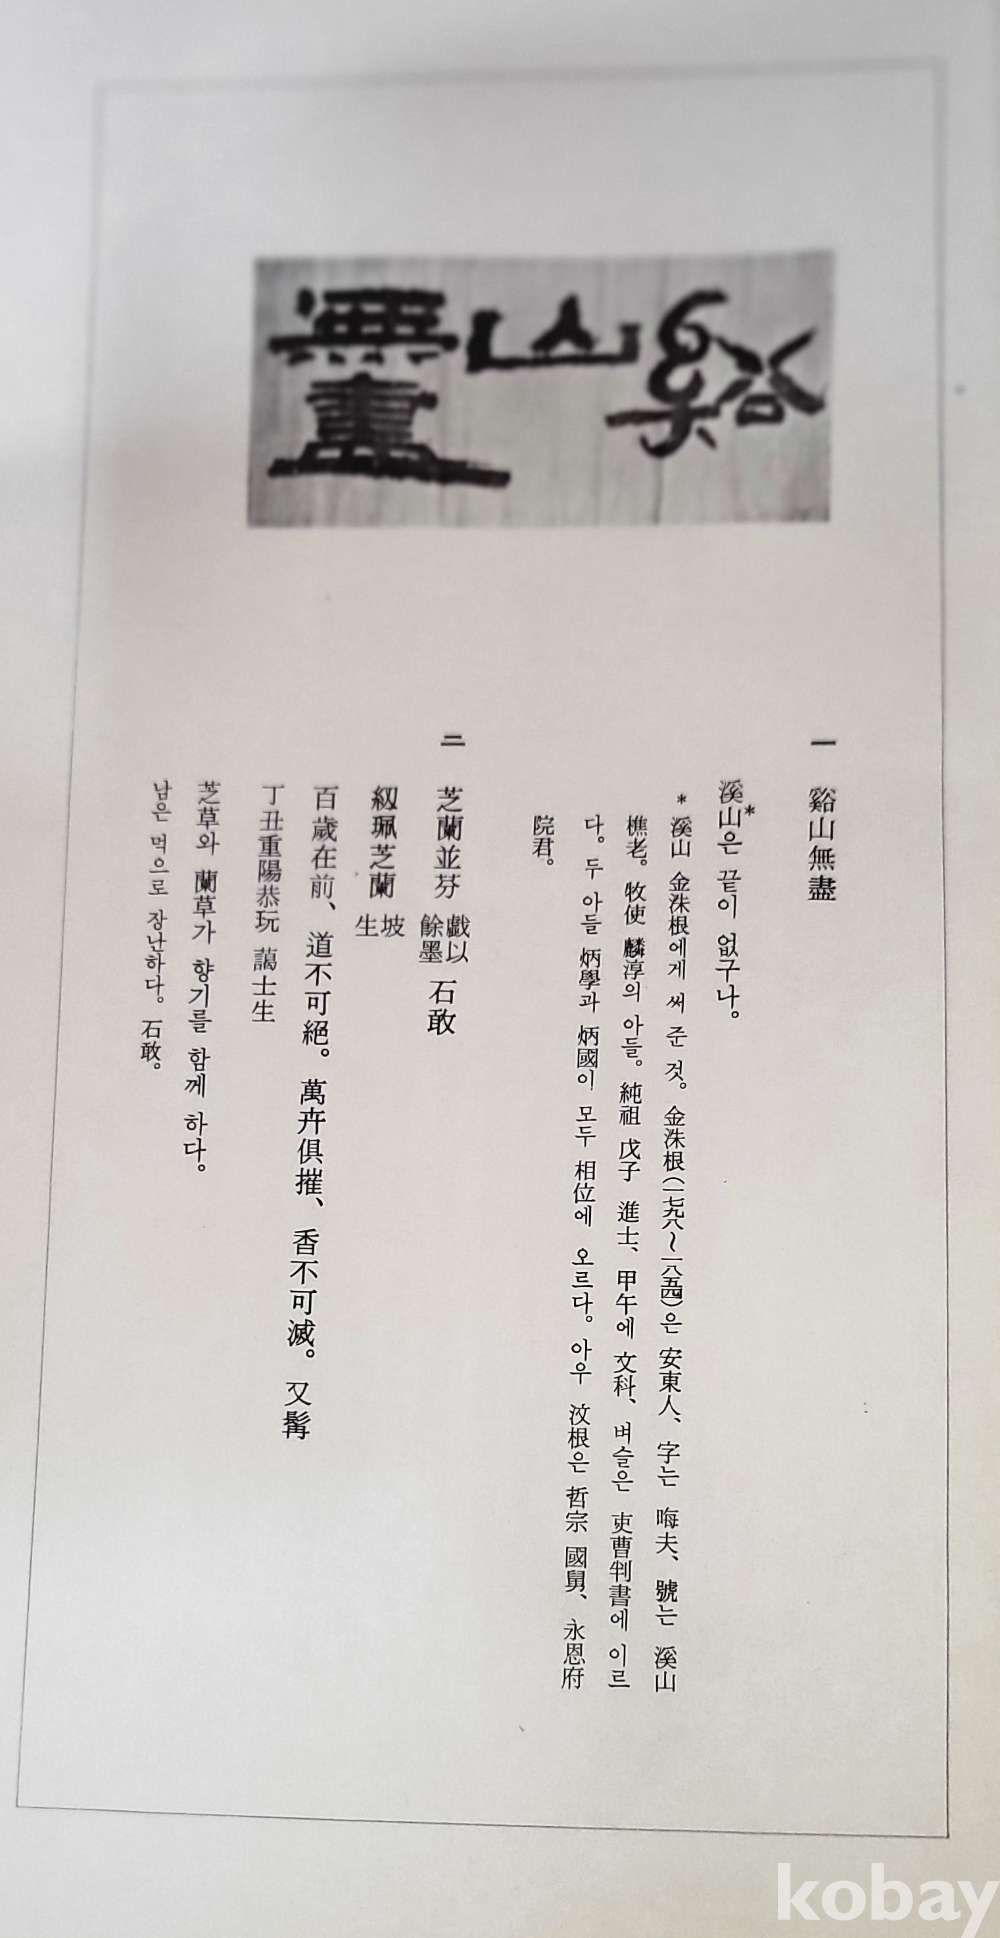 谿山無盡
一 谿山無盡
溪山*은 끝이 없구나。
* 溪山 金洙根에게 써 준 것。金洙根(一七九八~一八五四)은 安東人、字는 晦夫、號는 溪山
樵老。牧使 麟淳의 아들。純祖 戊子 進士、甲午에 文科、벼슬은 吏曹判書에 이르
다。두 아들 炳學과 炳國이 모두 相位에 오르다。아우 汶根은 哲宗 國舅、永恩府
院君。
二 芝蘭並芬 戱以餘墨 石敢
紉珮芝蘭 坡生
百歲在前、道不可絕。萬卉俱摧、香不可滅。又髥
丁丑重陽恭玩 藹士生
芝草와 蘭草가 향기를 함께 하다。
남은 먹으로 장난하다。石敢。
kobay